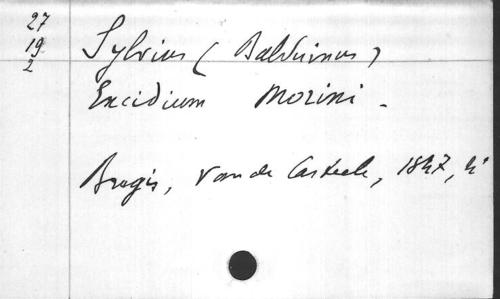 27
19
2
Sylvius (Balduinus)
Excidium Morini.
Brugis, Van de Casteele, 1847, 4°